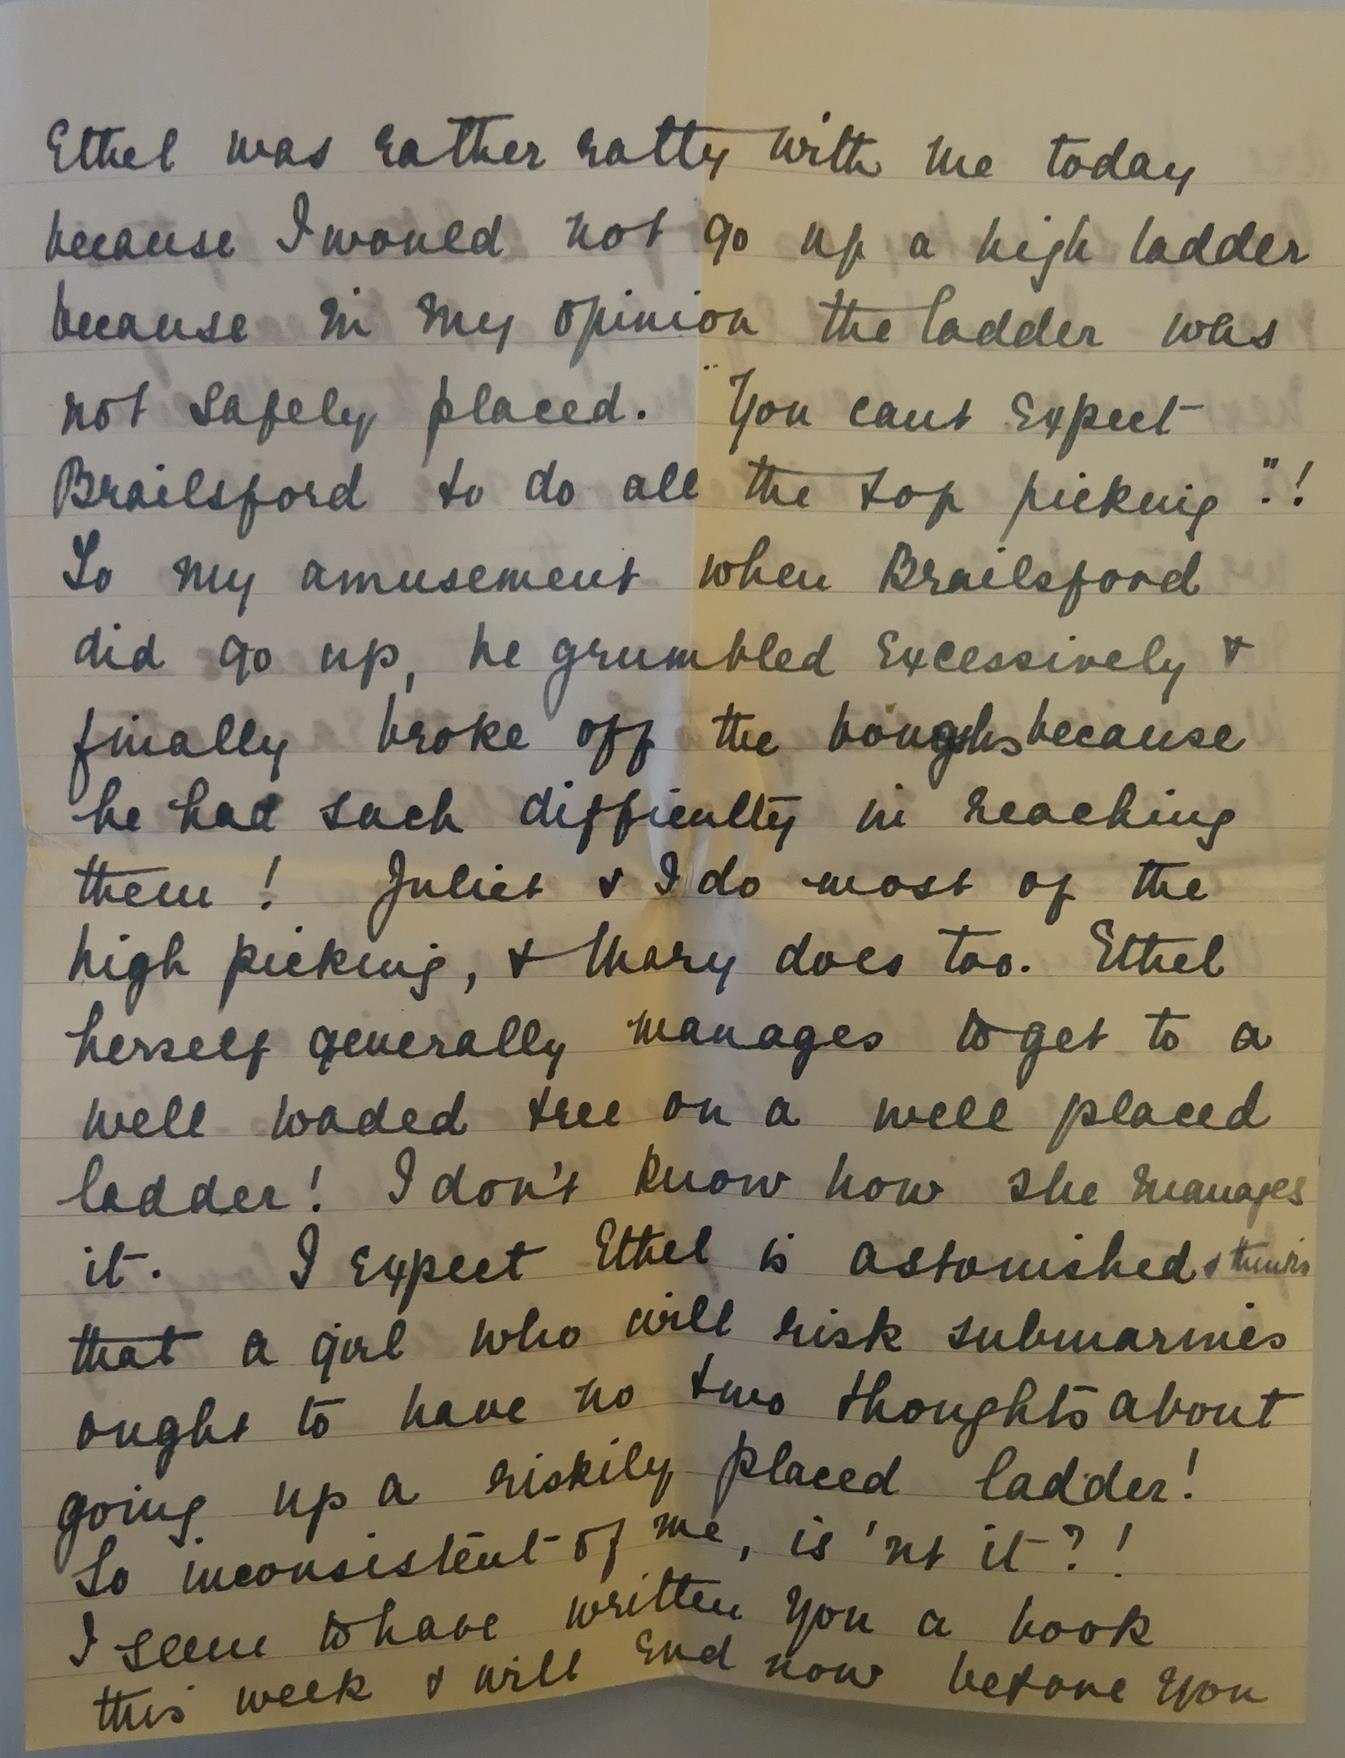 Ethel was rather ratty with me today
because I would not go up a high ladder
because in my opinion the ladder was
not safely placed. "You cant expect
Brailsford to do all the top picking"!
To my amusement when Brailsford
did go up, he grumbled excessively &
finally broke off the boughs because
he had such difficulty in reaching
them! Juliet & I do most of the
high picking, & Mary does too. Ethel
herself generally manages to get to a
well loaded tree on a well placed
ladder! I don't know how she manages
it. I expect Ethel is astonished & thinks
that a girl who will risk submarines
ought to have no two thoughts about
going up a riskily placed ladder!
So inconsistent of me, is 'nt it?!
I seem to have written you a book
this week & will end now before you